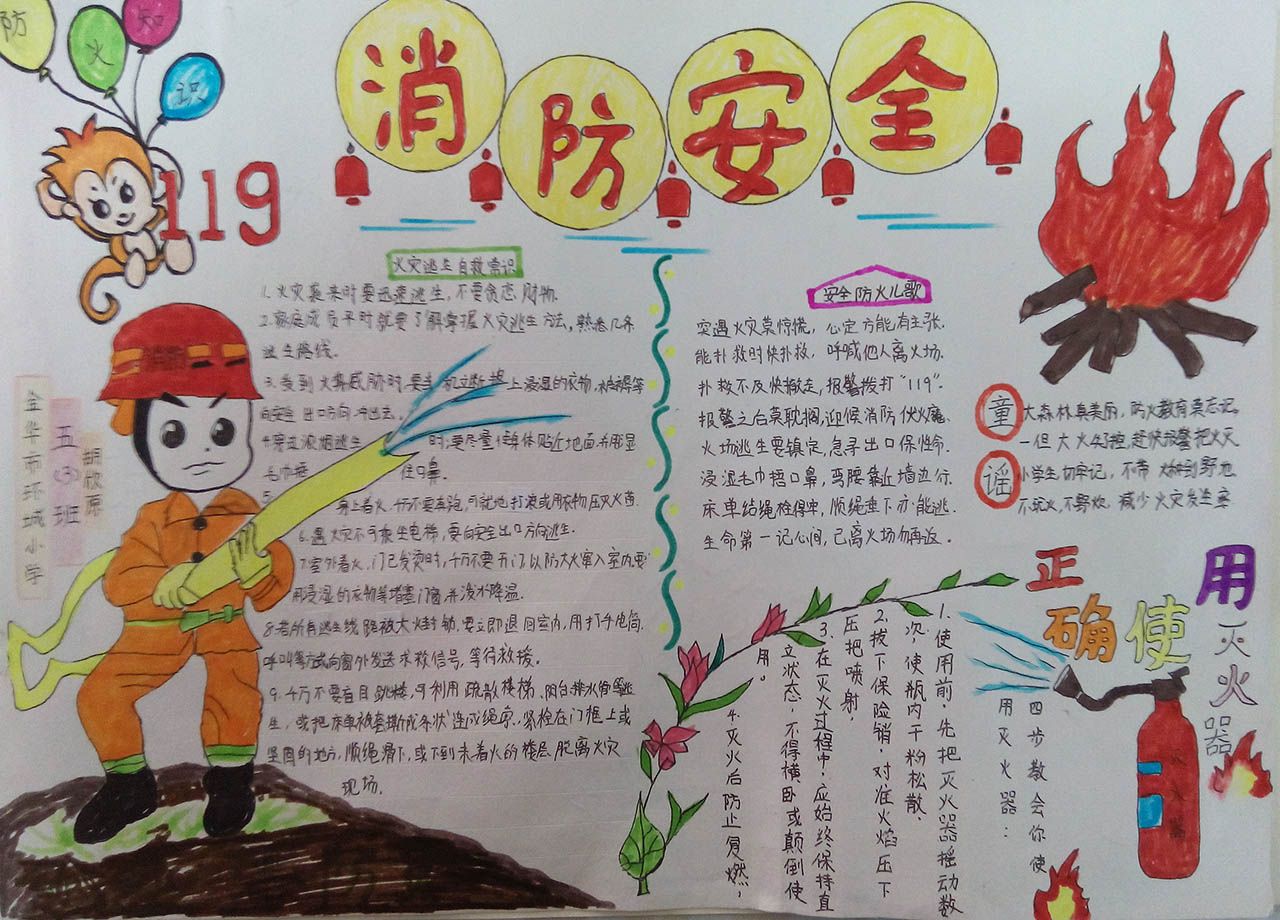 防火知识
消防安全
119
金华市环城小学
五(3)班
胡欣源
火灾逃生自救常识
1.火灾袭来时要迅速逃生,不要贪恋财物.
2.家庭成员平时就要了解掌握火灾逃生方法,熟悉几条
逃生路线.
3.受到火势威胁时,要当机立断披上浸湿的衣物,被褥等
向安全出口方向冲出去.
4.穿过浓烟逃生时,要尽量使身体贴近地面并用湿
毛巾捂住口鼻.
5.身上着火,千万不要奔跑,可就地打滚或用衣物压灭火苗.
6.遇火灾不可乘坐电梯,要向安全出口方向逃生.
7.室外着火,门已发烫时,千万不要开门,以防大火窜入室内,要
用浸湿的衣物等堵塞门窗并泼水降温.
8.若所有逃生线路被大火封锁,要立即退回室内,用打手电筒,
呼叫等方式向窗外发送求救信号,等待救援。
9.千万不要盲目跳楼,可利用疏散楼梯、阳台、排水管等逃
生,或把床单被套撕成条状连成绳索,紧栓在门框上或
坚固的地方,顺绳滑下,或下到未着火的楼层脱离火灾
现场.
安全防火儿歌
突遇火灾莫惊慌,心定方能有主张.
能扑救时快扑救,呼喊他人离火场.
扑救不及快撤走,报警拨打“119”.
报警之后莫耽搁,迎候消防伏火魔.
火场逃生要镇定,急寻出口保性命.
浸湿毛巾捂口鼻,弯腰靠近墙边行.
床单结绳栓得牢,顺绳垂下亦能逃.
生命第一记心间,已离火场勿再返.
童谣
大森林真美丽,防火教育莫忘记.
一但大火,赶快报警把火灭
小学生切牢记,不带火种到野地
不玩火,不野炊,减少火灾发生率
正确使用灭火器
四步教会你使
用灭火器:
1.使用前,先把灭火器摇动数
次,使瓶内干粉松散.
2.拔下保险销,对准火焰压下
压把喷射.
3.在灭火过程中,应始终保持直
立状态,不得横卧或颠倒使
用。
4.灭火后防止复燃,
灭火器